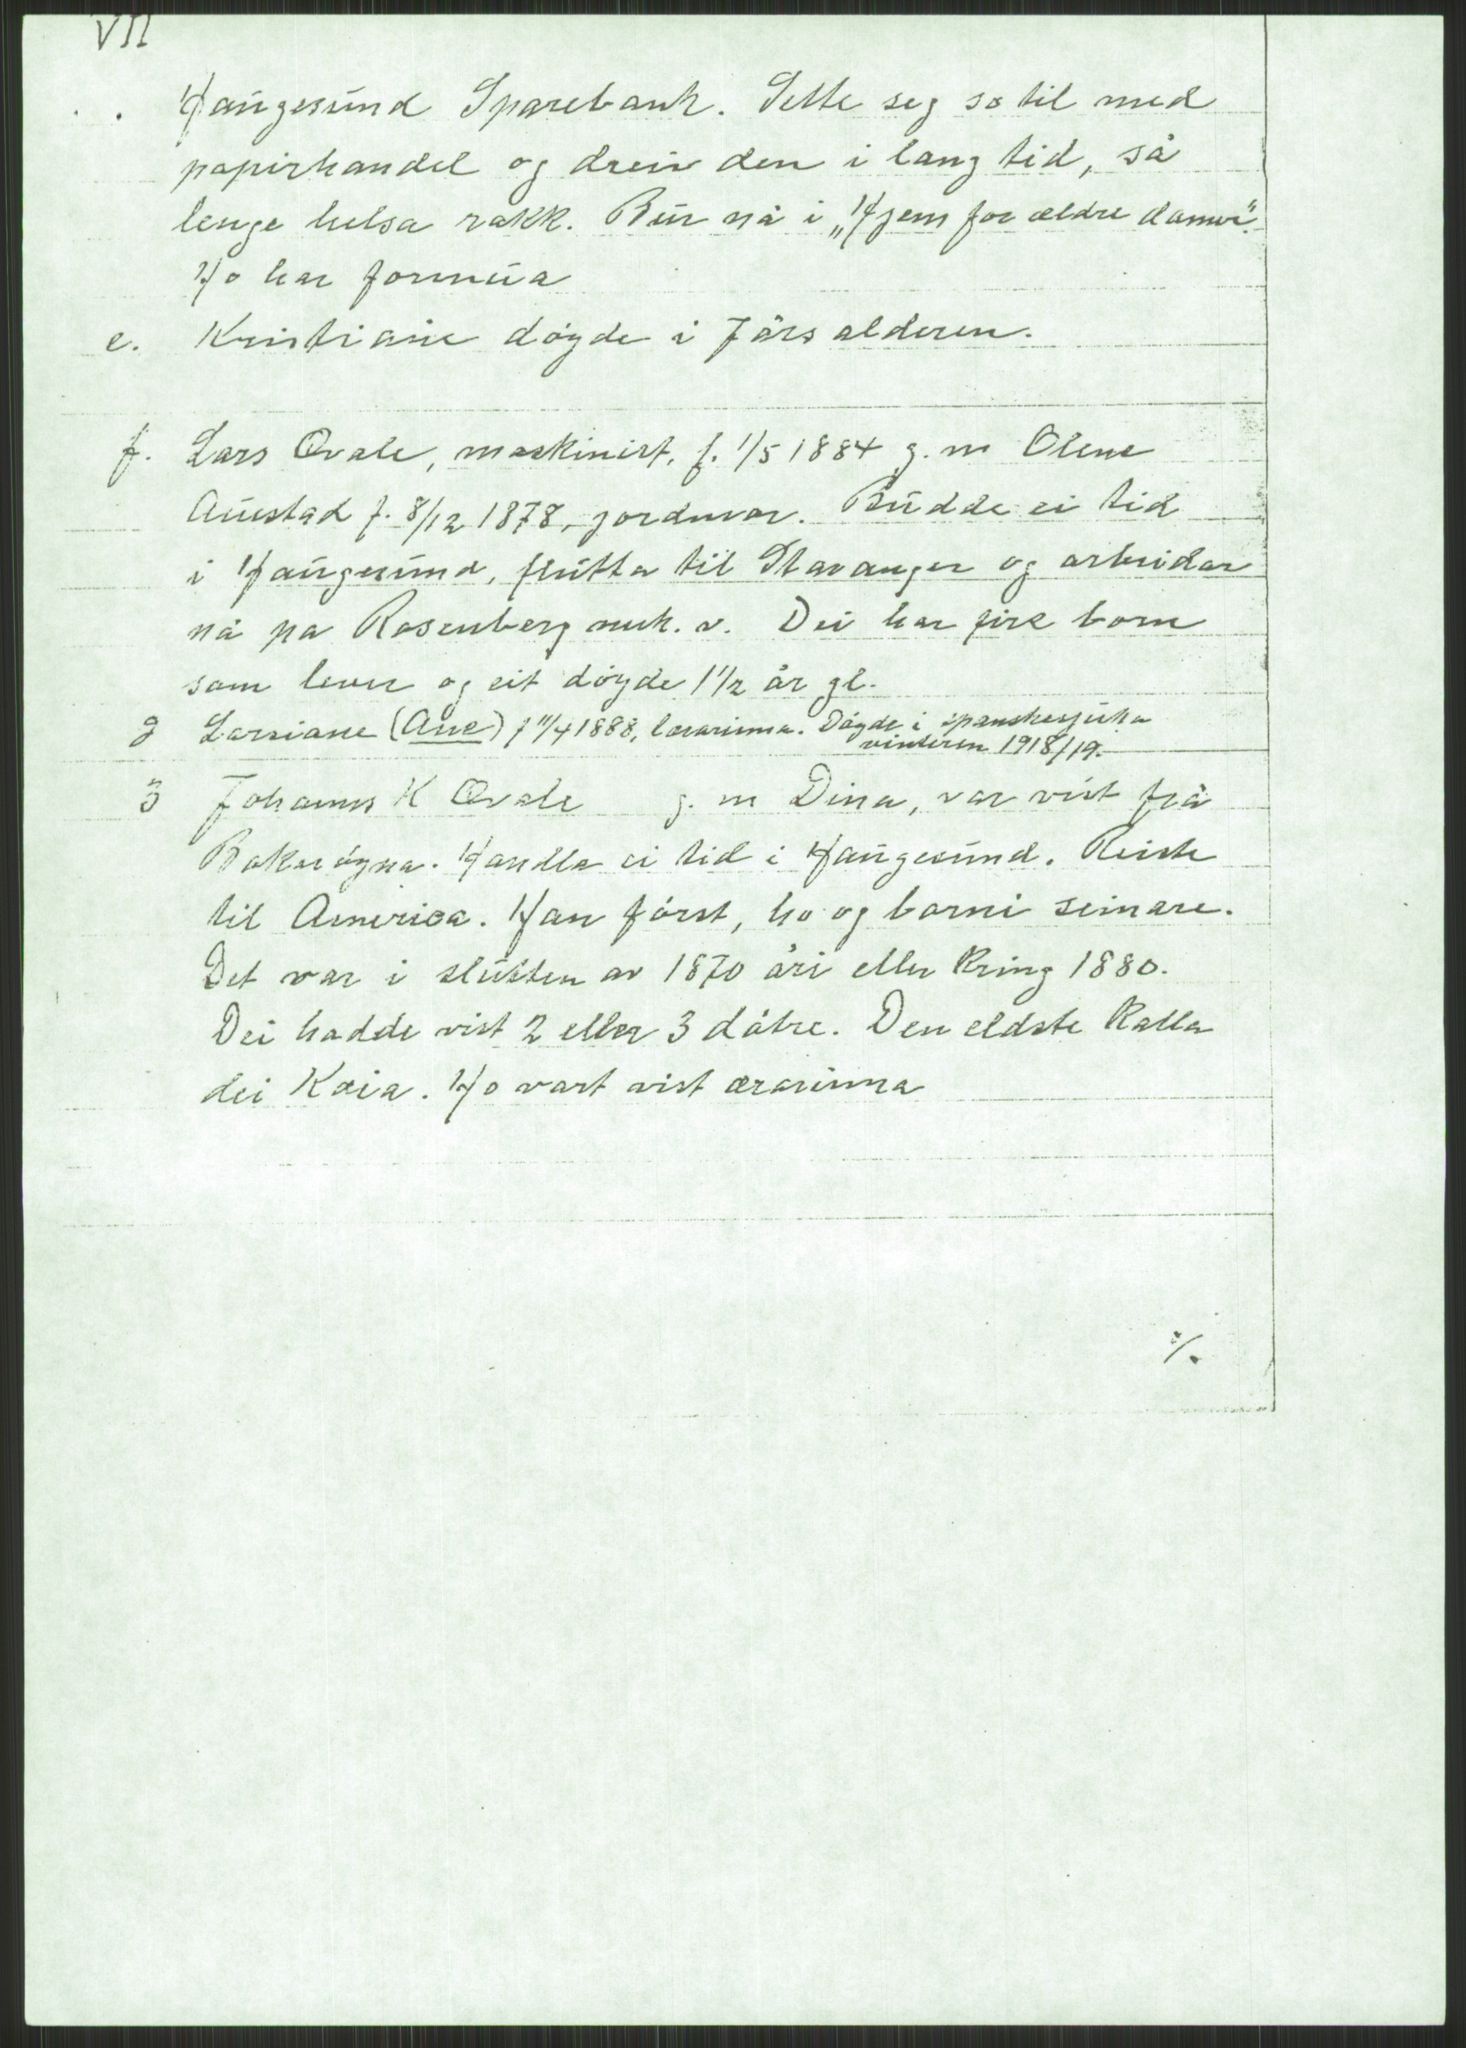 VII
Haugesund Sparebank. Sette seg so til med
papirhandel og dreiv den i lang tid, så
lenge helsa rakk. Bur nå i „Hjem for ældre damer".
Ho har formua
e. Kristiane døyde i 7 års alderen.
f. Lars Kvale, maskinist, f. 1/5 1884 g. m Olene
Austad f. 8/12 1878, jordmor. Budde ei tid
i Haugesund, flutta til Stavanger og arbeidar
nå på Rosenberg mek. v. Dei har fire born
som lever og eit døyde 1 1/2 år gl.
g Larsiane (Ane) f 11/4 1888, lærarinna. Døyde i spanskesjuka
vinteren 1918/19.
3 Johannes K Kvale g. m Dina, var vist frå
Bokn øyna. Handla ei tid i Haugesund. Reiste
til America. Han først, ho og borni seinare.
Det var i slutten av 1870 åri eller kring 1880.
Dei hadde vist 2 eller 3 døtre. Den eldste kalla
dei Kaia. Ho vart vist ærarinna
·/.